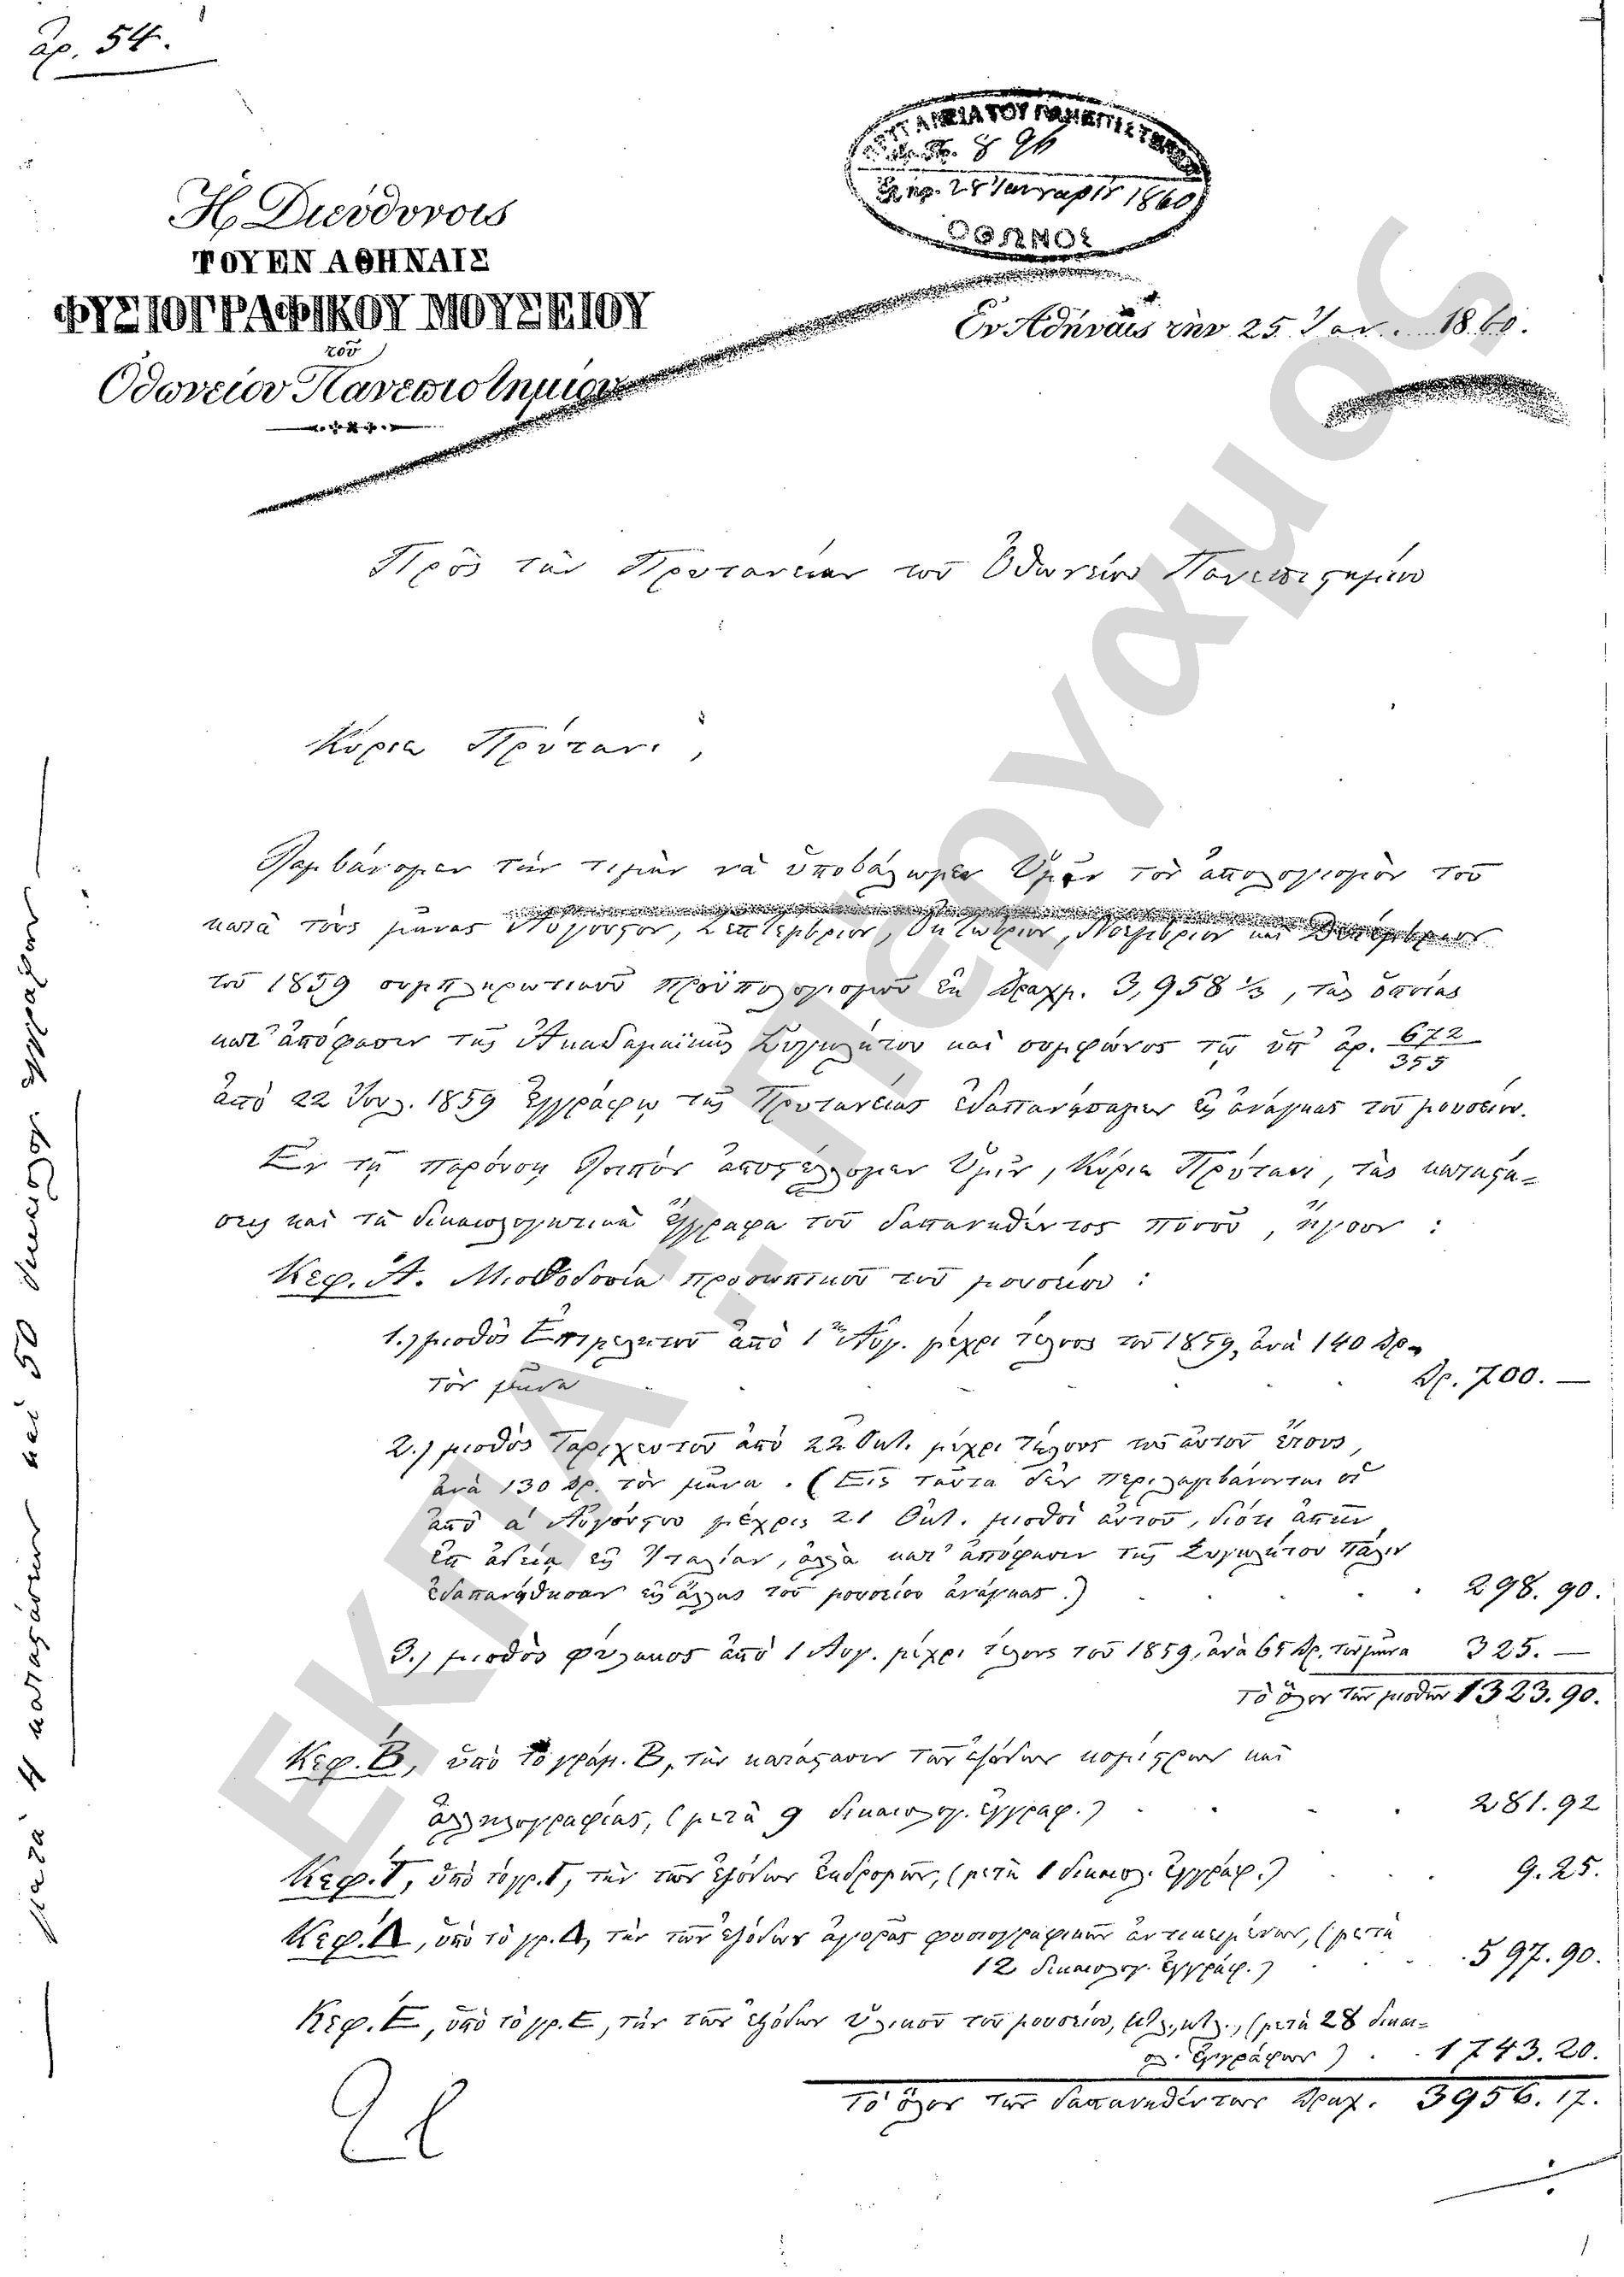 ἀρ. 54.
ΠΡΥΤΑΝΕΙΑ ΤΟΥ ΠΑΝΕΠΙΣΤΗΜΙΟΥ
896
28 Ἰανναρίυ 1860
ΟΘΩΝΟΣ
Ἡ Διεύθυνσις
ΤΟΥ ΕΝ ΑΘΗΝΑΙΣ
ΦΥΣΙΟΓΡΑΦΙΚΟΥ ΜΟΥΣΕΙΟΥ
τοῦ
Ὀθωνείου Πανεπιστημίου
Ἐν Ἀθήναις τὴν 25 Ἰαν. 1860.
Πρὸς τὴν Πρυτανείαν τοῦ Ὀθωνείου Πανεπιστημίου
Κύριε Πρύτανι,
Λαμβάνομεν τὴν τιμὴν νὰ ὑποβάλωμεν Ὑμῖν τὸν ἀπολογισμὸν τοῦ
κατὰ τοὺς μῆνας Αὔγουστον, Σεπτέμβριον, Ὀκτώβριον, Νοέμβριον καὶ Δεκέμβριον
τοῦ 1859 συμπληρωτικοῦ προϋπολογισμοῦ ἐκ Δραχμ. 3,958 ⅓, τὰς ὁποίας
κατ' ἀπόφασιν τῆς Ἀκαδημαϊκῆς Συγκλήτου καὶ συμφώνως τῷ ὑπ' ἀρ. 672/355
ἀπὸ 22 Ἰουλ. 1859 ἐγγράφῳ τῆς Πρυτανείας ἐδαπανήσαμεν εἰς ἀνάγκας τοῦ μουσείου.
Ἐν τῇ παρούσῃ λοιπὸν ἀποστέλλομεν Ὑμῖν, Κύριε Πρύτανι, τὰς καταστά=
σεις καὶ τὰ δικαιολογητικὰ ἔγγραφα τοῦ δαπανηθέντος ποσοῦ, ἤγουν:
Κεφ. Α. Μισθοδοσία προσωπικοῦ τοῦ μουσείου:
1.) μισθὸς Ἐπιμελητοῦ ἀπὸ 1ης Αὐγ. μέχρι τέλους τοῦ 1859, ἀνὰ 140 Δρ.
τὸν μῆνα Δρ. 700. —
2.) μισθὸς Ταριχευτοῦ ἀπὸ 22 Ὀκτ. μέχρι τέλους τοῦ αὐτοῦ ἔτους,
ἀνὰ 130 Δρ. τὸν μῆνα. (Εἰς ταῦτα δὲν περιλαμβάνονται οἱ
ἀπὸ α Αὐγούστου μέχρις 21 Ὀκτ. μισθοὶ αὐτοῦ, διότι ἀπῆν
ἐπ' ἀδείᾳ εἰς Ἰταλίαν, ἀλλὰ κατ' ἀπόφασιν τῆς Συγκλήτου πάλιν
ἐδαπανήθησαν εἰς ἄλλας τοῦ μουσείου ἀνάγκας.) 298. 90.
3.) μισθὸς φύλακος ἀπὸ 1 Αὐγ. μέχρι τέλους τοῦ 1859, ἀνὰ 65 Δρ. τὸν μῆνα 325. —
Τὸ ὅλον τῶν μισθῶν 1323.90.
Κεφ. Β, ὑπὸ τὸ γράμ. Β, τὴν κατάστασιν τῶν ἐξόδων κομίστρων καὶ
ἀλληλογραφίας, (μετὰ 9 δικαιολογ. ἐγγράφ.) 281.92
Κεφ. Γ, ὑπὸ τὸ γρ. Γ, τὴν τῶν ἐξόδων ἐκδρομῶν, (μετὰ 1 δικαιολ. ἐγγράφ.) 9.25.
Κεφ. Δ, ὑπὸ τὸ γρ. Δ, τὴν τῶν ἐξόδων ἀγορᾶς φυσιογραφικῶν ἀντικειμένων, (μετὰ
12 δικαιολογ. ἐγγράφ.) 597.90.
Κεφ. Ε, ὑπὸ τὸ γρ. Ε, τὴν τῶν ἐξόδων ὑλικοῦ τοῦ μουσείου, κτλ., κτλ., (μετὰ 28 δικαι=
ολ. ἐγγράφων) 1743.20.
Τὸ ὅλον τῶν δαπανηθέντων Δραχ. 3956.17.
μετὰ 4 καταστάσεων καὶ 50 δικαιολογ. ἐγγράφων
ΕΚΠΑ: Πέργαμος